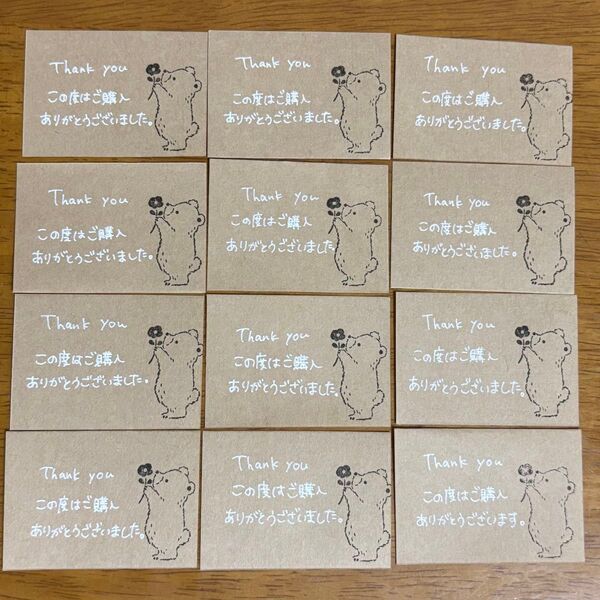 Thank you
この度はご購入
ありがとうございました。
Thank you
この度はご購入
ありがとうございました。
Thank you
この度はご購入
ありがとうございました。
Thank you
この度はご購入
ありがとうございました。
Thank you
この度はご購入
ありがとうございました。
Thank you
この度はご購入
ありがとうございました。
Thank you
この度はご購入
ありがとうございました。
Thank you
この度はご購入
ありがとうございました。
Thank you
この度はご購入
ありがとうございました。
Thank you
この度はご購入
ありがとうございました。
Thank you
この度はご購入
ありがとうございました。
Thank you
この度はご購入
ありがとうございます。